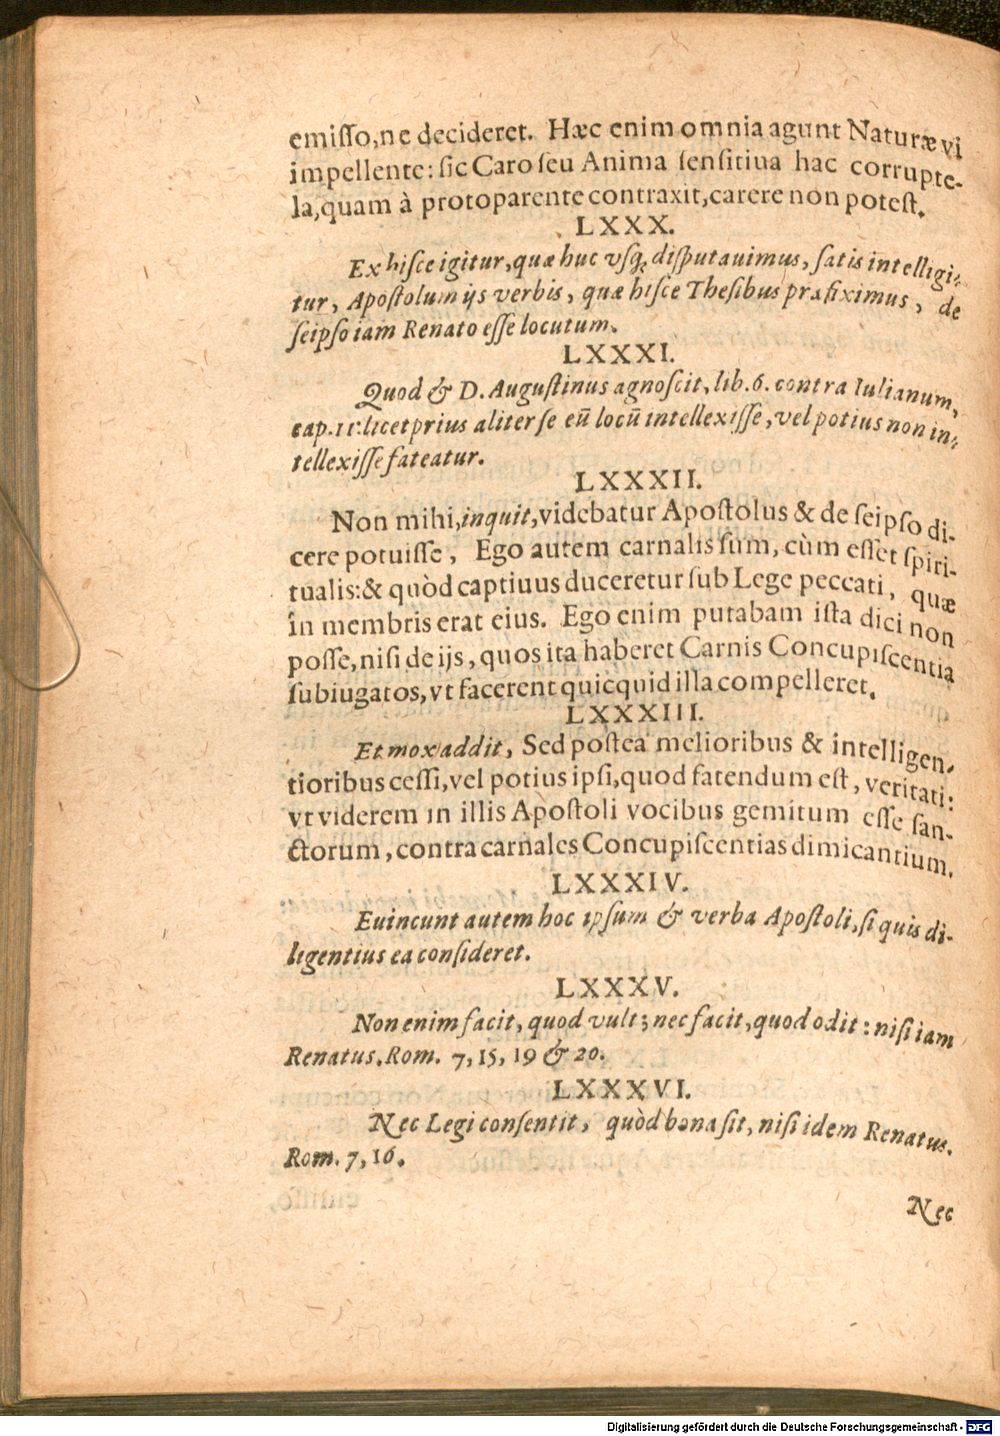 emiſſo,ne decideret. Hæc enim omnia agunt Naturæ vi
impellente: ſic Caro ſeu Anima ſenſitiua hac corrupte-
la,quam à protoparente contraxit,carere non poteſt.
LXXX.
Ex hiſce igitur,quæ huc vſq; diſputauimus, ſatis intelligi-
tur, Apoſtolum ijs verbis, quæ hiſce Theſibus præfiximus, de
ſeipſo iam Renato eſſe locutum.
LXXXI.
Quod & D. Auguſtinus agnoſcit, lib. 6. contra Iulianum,
cap. 11. licet prius aliter ſe eũ locũ intellexiſſe, vel potius non in-
tellexiſſe fateatur.
LXXXII.
Non mihi, inquit, videbatur Apoſtolus & de ſeipſo di-
cere potuiſſe, Ego autem carnalis ſum, cùm eſſet ſpiri-
tualis: & quòd captiuus duceretur ſub Lege peccati, quæ
in membris erat eius. Ego enim putabam iſta dici non
poſſe, niſi de ijs, quos ita haberet Carnis Concupiſcentia
ſubiugatos, vt facerent quicquid illa compelleret.
LXXXIII.
Et mox addit, Sed poſtea melioribus & intelligen-
tioribus ceſſi, vel potius ipſi, quod fatendum eſt, veritati:
vt viderem in illis Apoſtoli vocibus gemitum eſſe ſan-
ctorum, contra carnales Concupiſcentias dimicantium.
LXXXIV.
Euincunt autem hoc ipſum & verba Apoſtoli, ſi quis di-
ligentius ea conſideret.
LXXXV.
Non enim facit, quod vult; nec facit, quod odit: niſi iam
Renatus. Rom. 7, 15, 19 & 20.
LXXXVI.
Nec Legi conſentit, quòd bona ſit, niſi idem Renatus.
Rom. 7, 16.
Nec
Digitalisierung gefördert durch die Deutsche Forschungsgemeinschaft - DFG